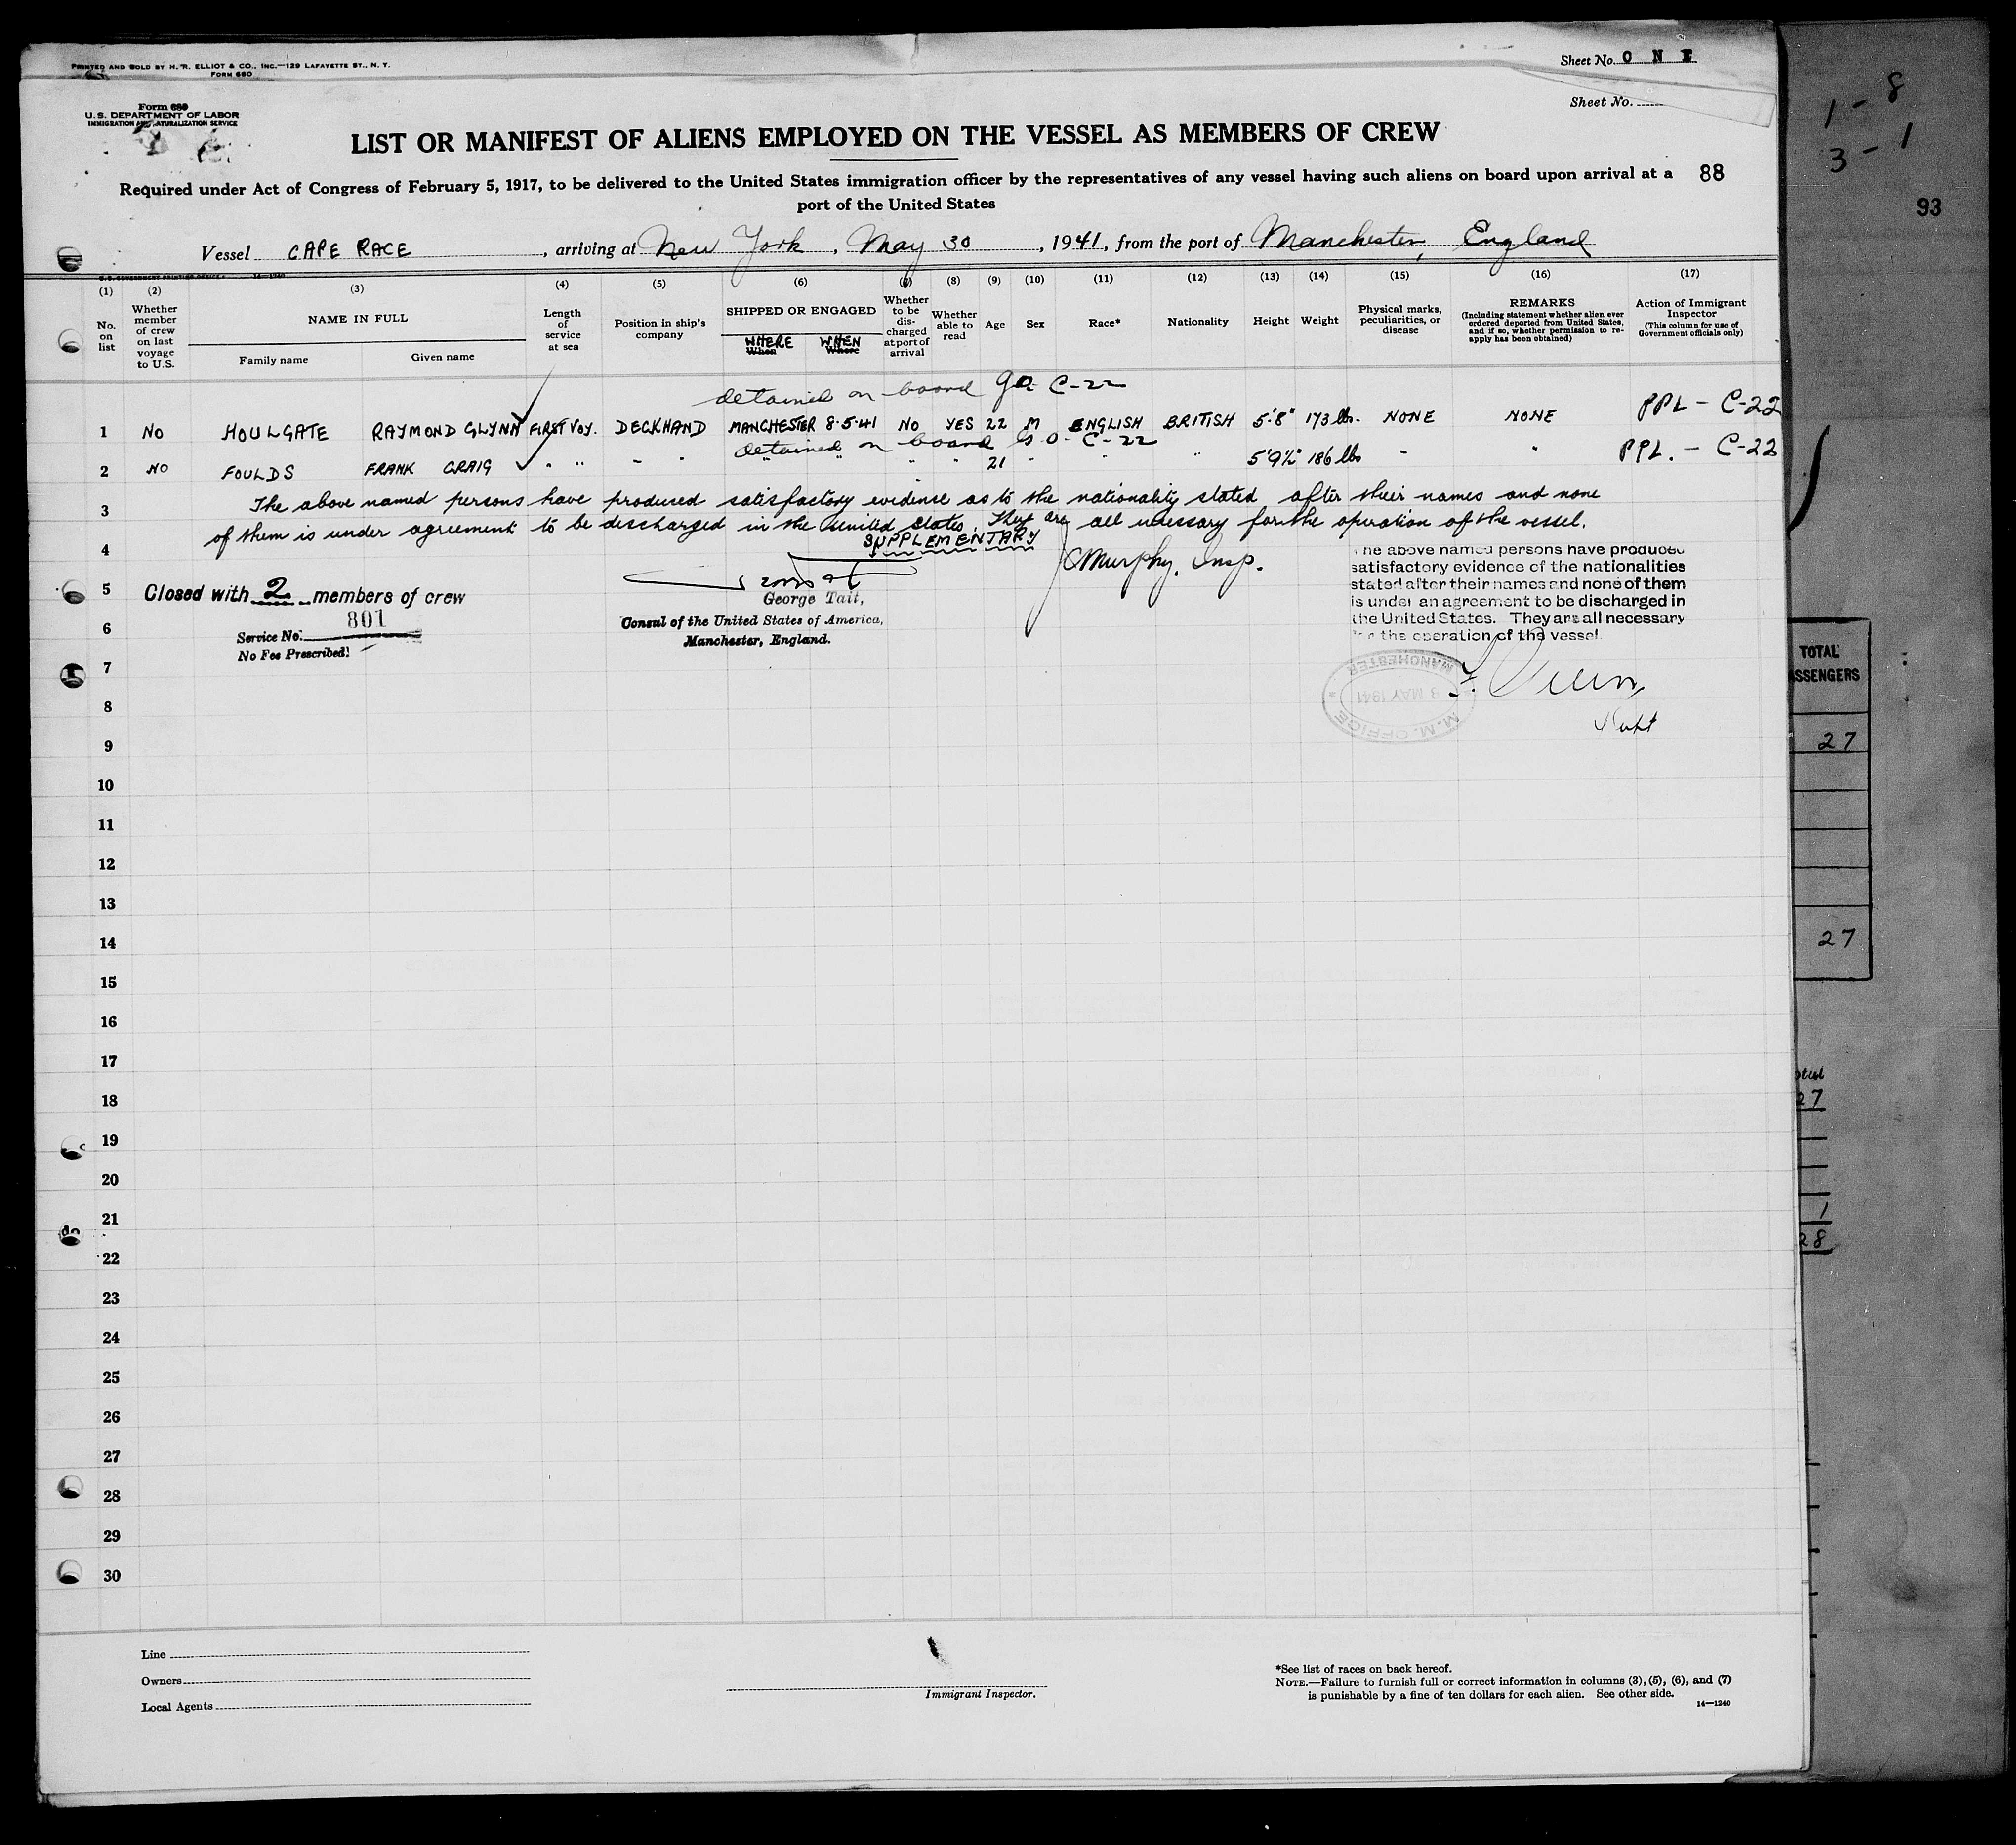 PRINTED AND SOLD BY H. R. ELLIOT & CO., INC.—129 LAFAYETTE ST., N. Y.
FORM 680
Sheet No. ONE
Sheet No.
Form 680
U. S. DEPARTMENT OF LABOR
IMMIGRATION AND NATURALIZATION SERVICE
LIST OR MANIFEST OF ALIENS EMPLOYED ON THE VESSEL AS MEMBERS OF CREW
Required under Act of Congress of February 5, 1917, to be delivered to the United States immigration officer by the representatives of any vessel having such aliens on board upon arrival at a
port of the United States
88
1 - 8
3 - 1
93
Vessel CAPE RACE, arriving at New York, May 30, 1941, from the port of Manchester, England
U. S. GOVERNMENT PRINTING OFFICE 14—1240
(1) No. on list
(2) Whether member of crew on last voyage to U.S.
(3) NAME IN FULL
Family name Given name
(4) Length of service at sea
(5) Position in ship's company
(6) SHIPPED OR ENGAGED
WHERE WHEN
When Where
(7) Whether to be discharged at port of arrival
(8) Whether able to read
(9) Age
(10) Sex
(11) Race*
(12) Nationality
(13) Height
(14) Weight
(15) Physical marks, peculiarities, or disease
(16) REMARKS
(Including statement whether alien ever ordered deported from United States, and if so, whether permission to reapply has been obtained)
(17) Action of Immigrant Inspector
(This column for use of Government officials only)
detained on board C-22
1 NO HOULGATE RAYMOND GLYNN FIRST VOY. DECKHAND MANCHESTER 8·5·41 NO YES 22 M ENGLISH BRITISH 5'·8" 173 lbs. NONE NONE PPL - C-22
detained on board G.O. C-22
2 NO FOULDS FRANK CRAIG " " " " " " " " 21 " " " 5'9½" 186 lbs " " PPL. - C-22
3 The above named persons have produced satisfactory evidence as to the nationality stated after their names and none
of them is under agreement to be discharged in the united states. They are all necessary for the operation of the vessel.
SUPPLEMENTARY
4
Murphy, Insp.
The above named persons have produced
satisfactory evidence of the nationalities
stated after their names and none of them
is under an agreement to be discharged in
the United States. They are all necessary
for the operation of the vessel.
5 Closed with 2 members of crew
George Tait,
Consul of the United States of America,
Manchester, England.
6 Service No. 801
No Fee Prescribed!
7
M.M. OFFICE
MAY 1941
MANCHESTER
8
9
10
11
12
13
14
15
16
17
18
19
20
21
22
23
24
25
26
27
28
29
30
TOTAL
SSENGERS
27
27
27
1
28
Line
Owners
Local Agents
Immigrant Inspector.
*See list of races on back hereof.
NOTE.—Failure to furnish full or correct information in columns (3), (5), (6), and (7)
is punishable by a fine of ten dollars for each alien. See other side.
14—1240